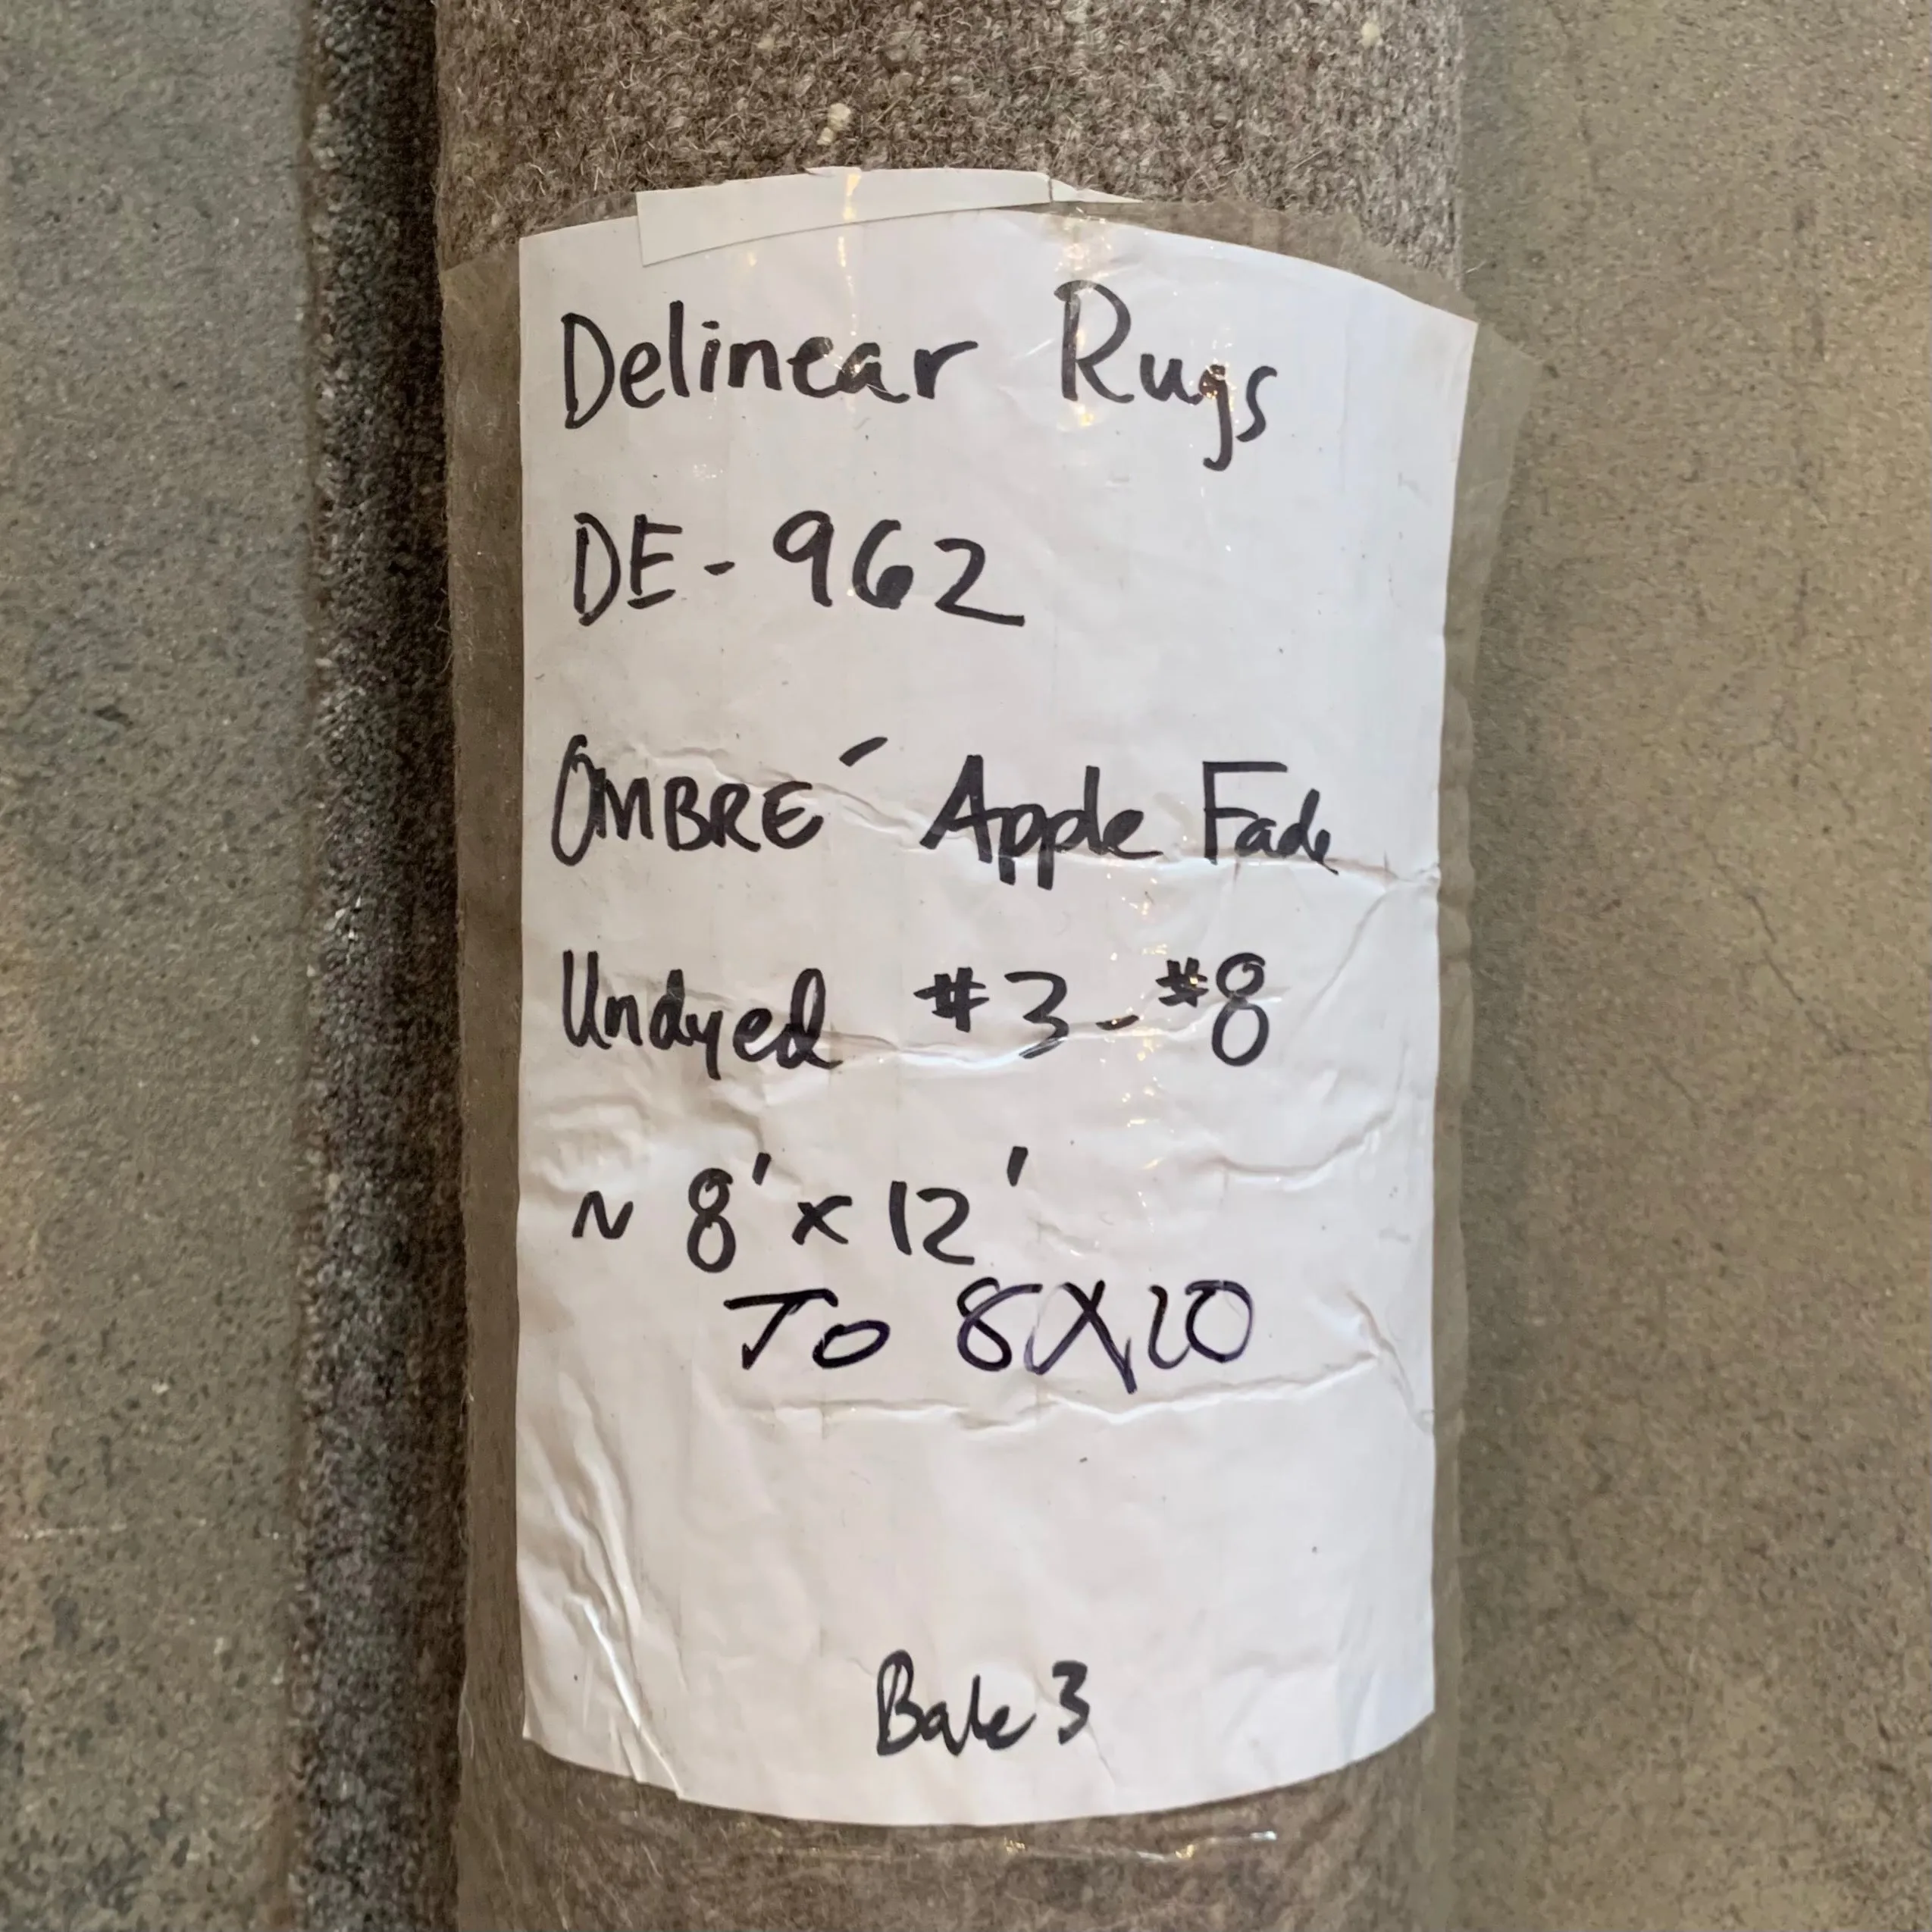 Delinear Rugs
DE-962
OMBRÉ Apple Fade
Undyed #3-#8
~ 8' x 12'
To 8X10
Bale 3